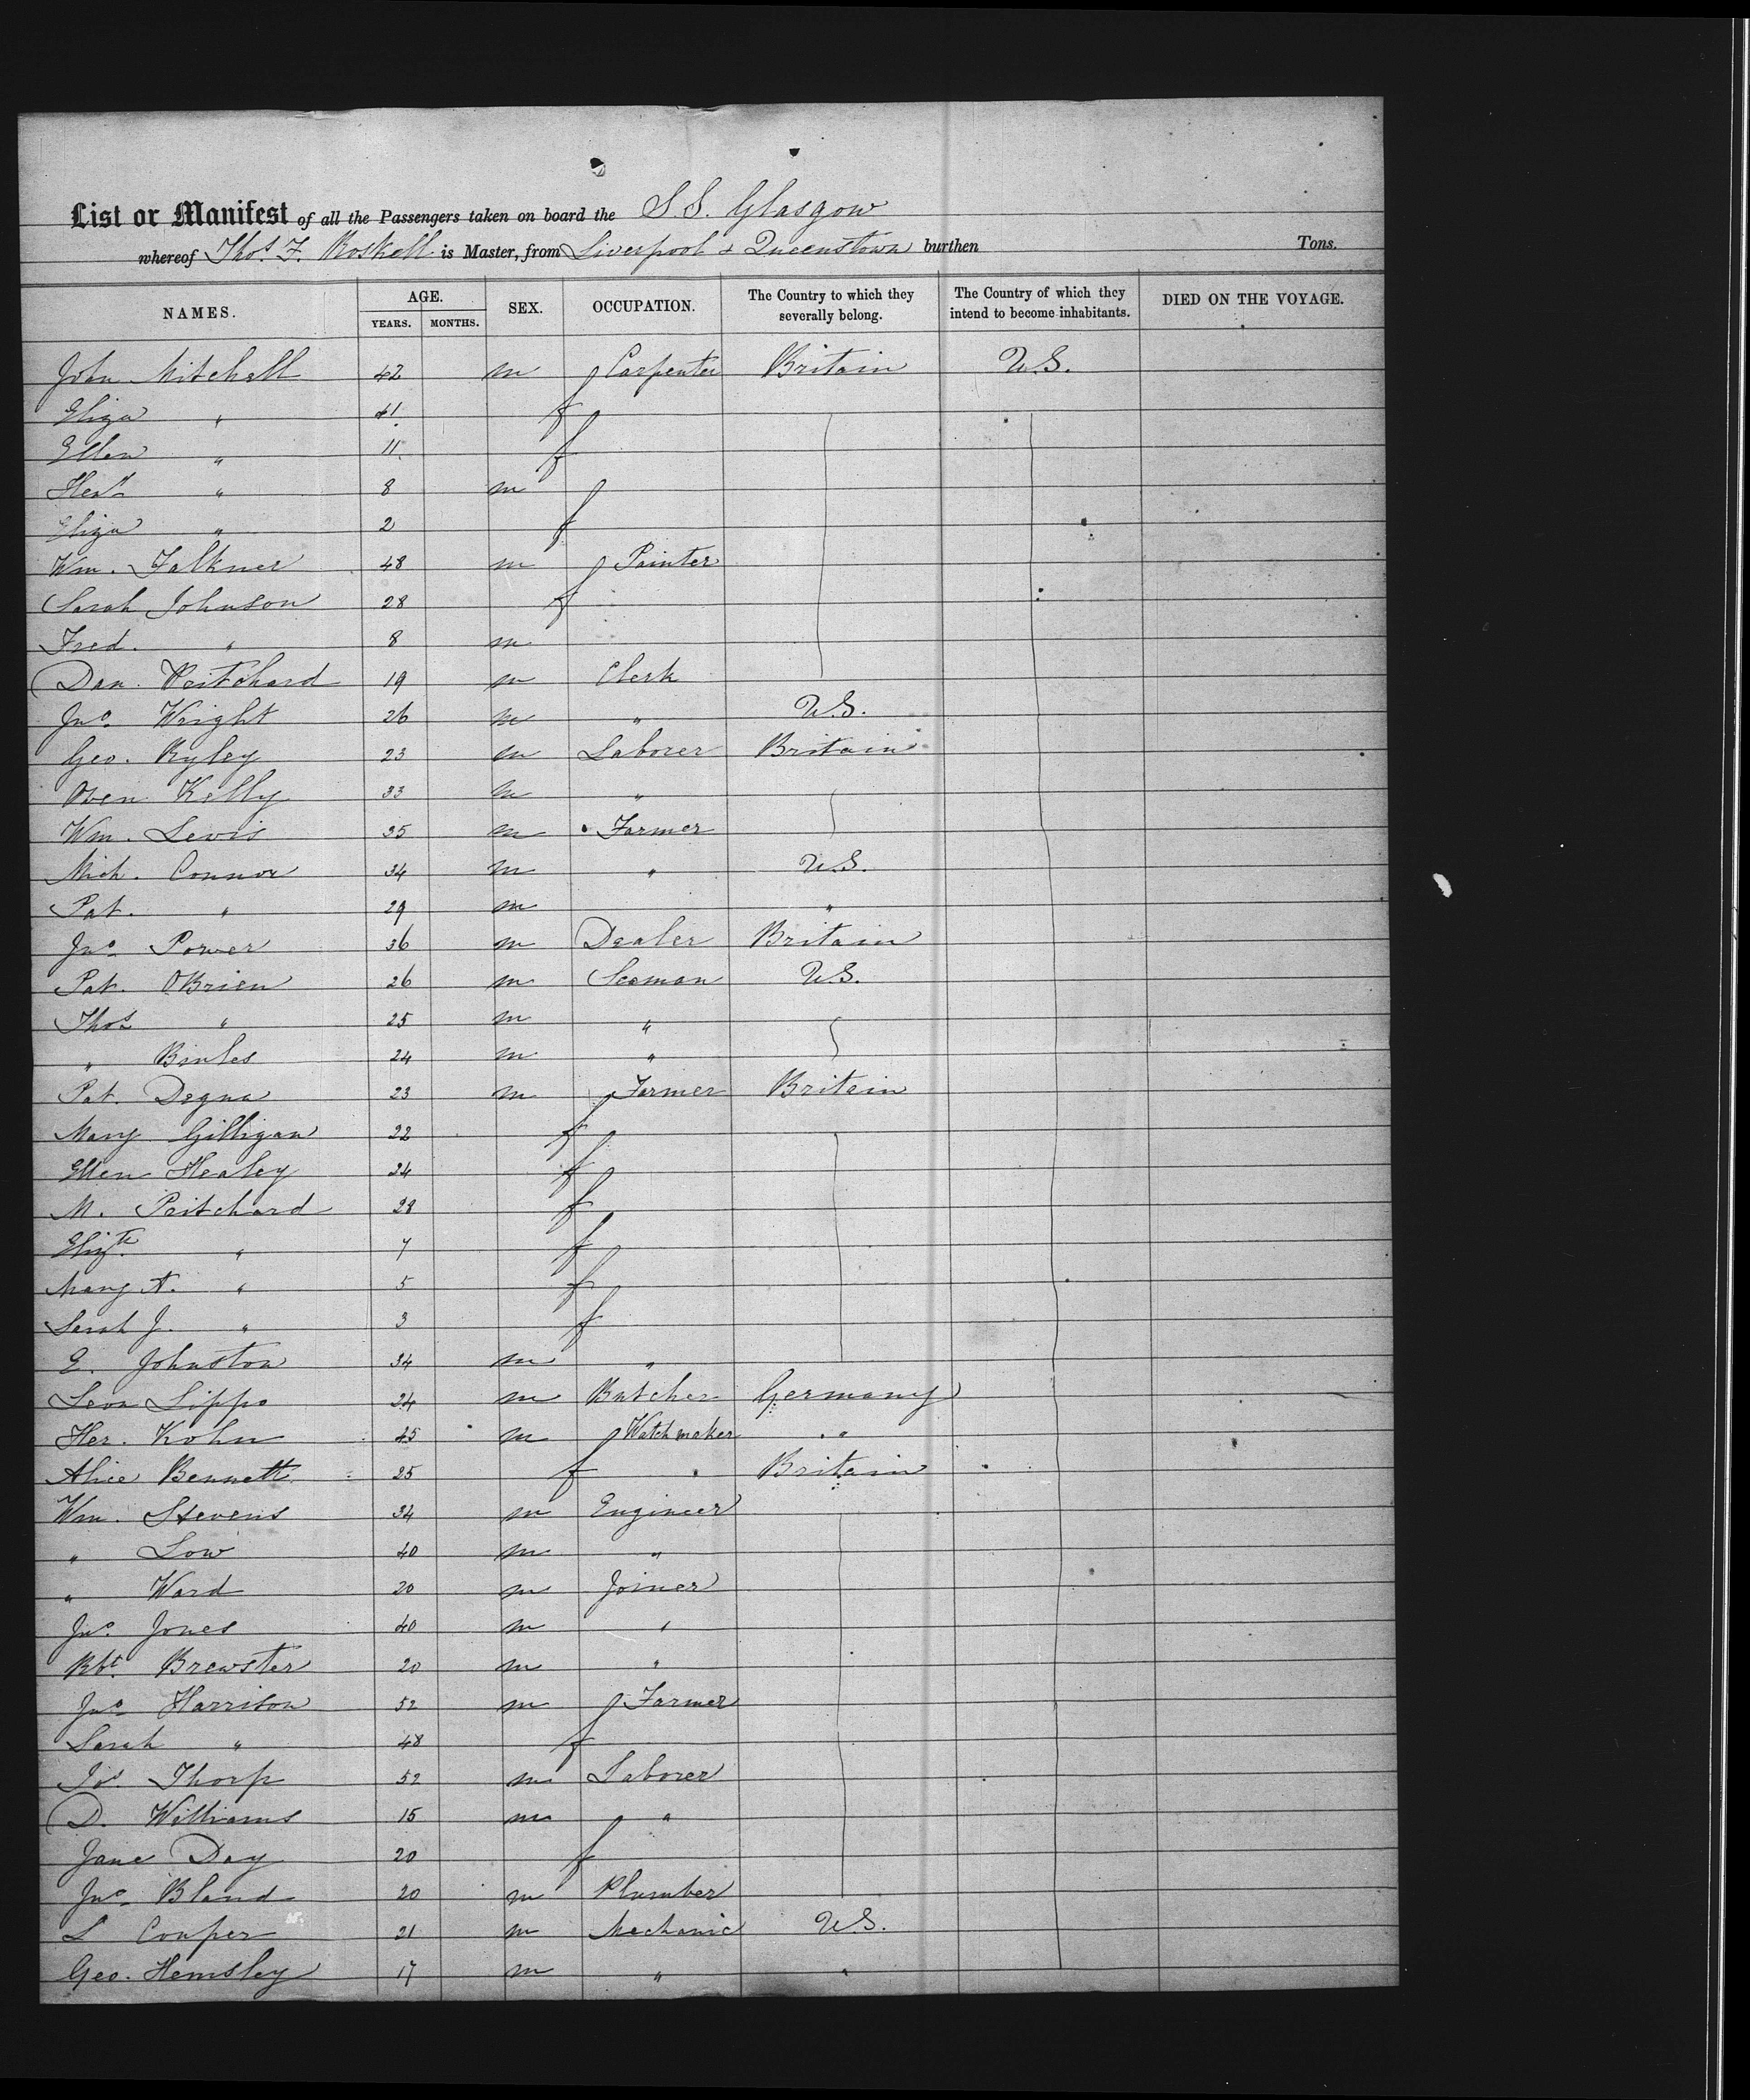 List or Manifest of all the Passengers taken on board the S.S. Glasgow
whereof Thos. F. Roskell is Master, from Liverpool & Queenstown burthen Tons.
NAMES. AGE. YEARS. MONTHS. SEX. OCCUPATION. The Country to which they severally belong. The Country of which they intend to become inhabitants. DIED ON THE VOYAGE.
John Mitchell 42 m Carpenter Britain U.S.
Eliza " 41 f
Ellen " 11 f
" 8 m
Eliza " 2 f
Wm. Falkner 48 m Painter
Sarah Johnson 28 f
Fred. " 8 m
Dan. Pritchard 19 m Clerk
Jno. Wright 26 m " U.S.
Geo. Ryley 23 m Laborer Britain
Owen Kelly 33 m "
Wm. Lewis 35 m Farmer
Mich. Connor 34 m " U.S.
Pat. " 29 m "
Jno. Power 36 m Dealer Britain
Pat. OBrien 26 m Seaman U.S.
Thos " 25 m "
" 24 m "
Pat. Degna 23 m Farmer Britain
Mary Gilligan 22 f
Ellen Healey 24 f
M. Pritchard 28 f
Elizth " 7 f
Mary A. " 5 f
Sarah J. " 3 f
E. Johnston 34 m "
Leon Lippo 24 m Butcher Germany
Her. Kohn 45 m Watchmaker "
Alice Bennett 25 f Britain
Wm. Stevens 34 m Engineer
" Low 40 m "
" Ward 20 m Joiner
Jno. Jones 40 m "
Rbt. Brewster 20 m "
Jno. Harrison 52 m Farmer
Sarah " 48 f
Jos Thorp 52 m Laborer
D. Williams 15 m "
Jane Day 20 f
Jno. Bland 20 m Plumber
L Couper 21 m Mechanic U.S.
Geo. Hemsley 17 m " "